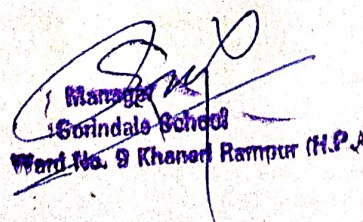 Manager
Gorindale School
Ward No. 9 Khaneri Rampur (H.P.)